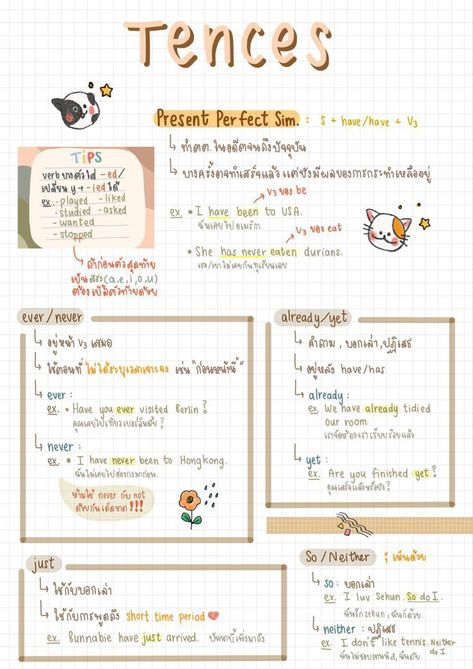 Tences
Present Perfect Sim. : S + have/have + V3
↳ ทำตต. ในอดีตจนถึงปัจจุบัน
↳ บางครั้งอาจทำเสร็จแล้ว แต่ยังมีผลของการกระทำเหลืออยู่
V3 ของ be
ex. • I have been to USA.
ฉันเคยไปอเมริกา.
V3 ของ eat
• She has never eaten durians.
เธอ/เขาไม่เคยกินทุเรียนเลย
TIPS
verb บางตัวใส่ -ed/
เปลี่ยน y → -ied ได้
ex. - played - liked
- studied - asked
- wanted
- stopped
ถ้าก่อนตัวสุดท้าย
เป็นสระ (a,e,i,o,u)
ต้องเบิ้ลตัวท้ายด้วย
ever/never
↳ อยู่หน้า V3 เสมอ
↳ ใช้ตอนที่ ไม่ได้ระบุเวลาเจาะจง เช่น "ก่อนหน้านี้"
↳ ever :
ex. • Have you ever visited Berlin?
คุณเคยไปเที่ยวเบอร์ลินมั้ย?
↳ never :
ex. • I have never been to Hongkong.
ฉันไม่เคยไปฮ่องกงมาก่อน.
ห้ามใช้ never กับ not
ด้วยกันเด็ดขาด!!!
already/yet
↳ คำถาม, บอกเล่า, ปฏิเสธ
↳ อยู่หลัง have/has
↳ already :
ex. We have already tidied
our room.
เราจัดห้องเราเรียบร้อยแล้ว
↳ yet :
ex. Are you finished yet?
คุณเสร็จแล้วหรือยัง?
just
↳ ใช้กับบอกเล่า
↳ ใช้กับการพูดถึง short time period
↳ ex. Bunnabie have just arrived.
So/Neither ; เห็นด้วย
↳ so : บอกเล่า
ex. I luv Sehun. So do I.
ฉันรัก sehun, ฉันก็ด้วย.
↳ neither : ปฏิเสธ
ex. I don't like tennis. Neither
do I
ฉันไม่ชอบเทนนิส, ฉันด้วย